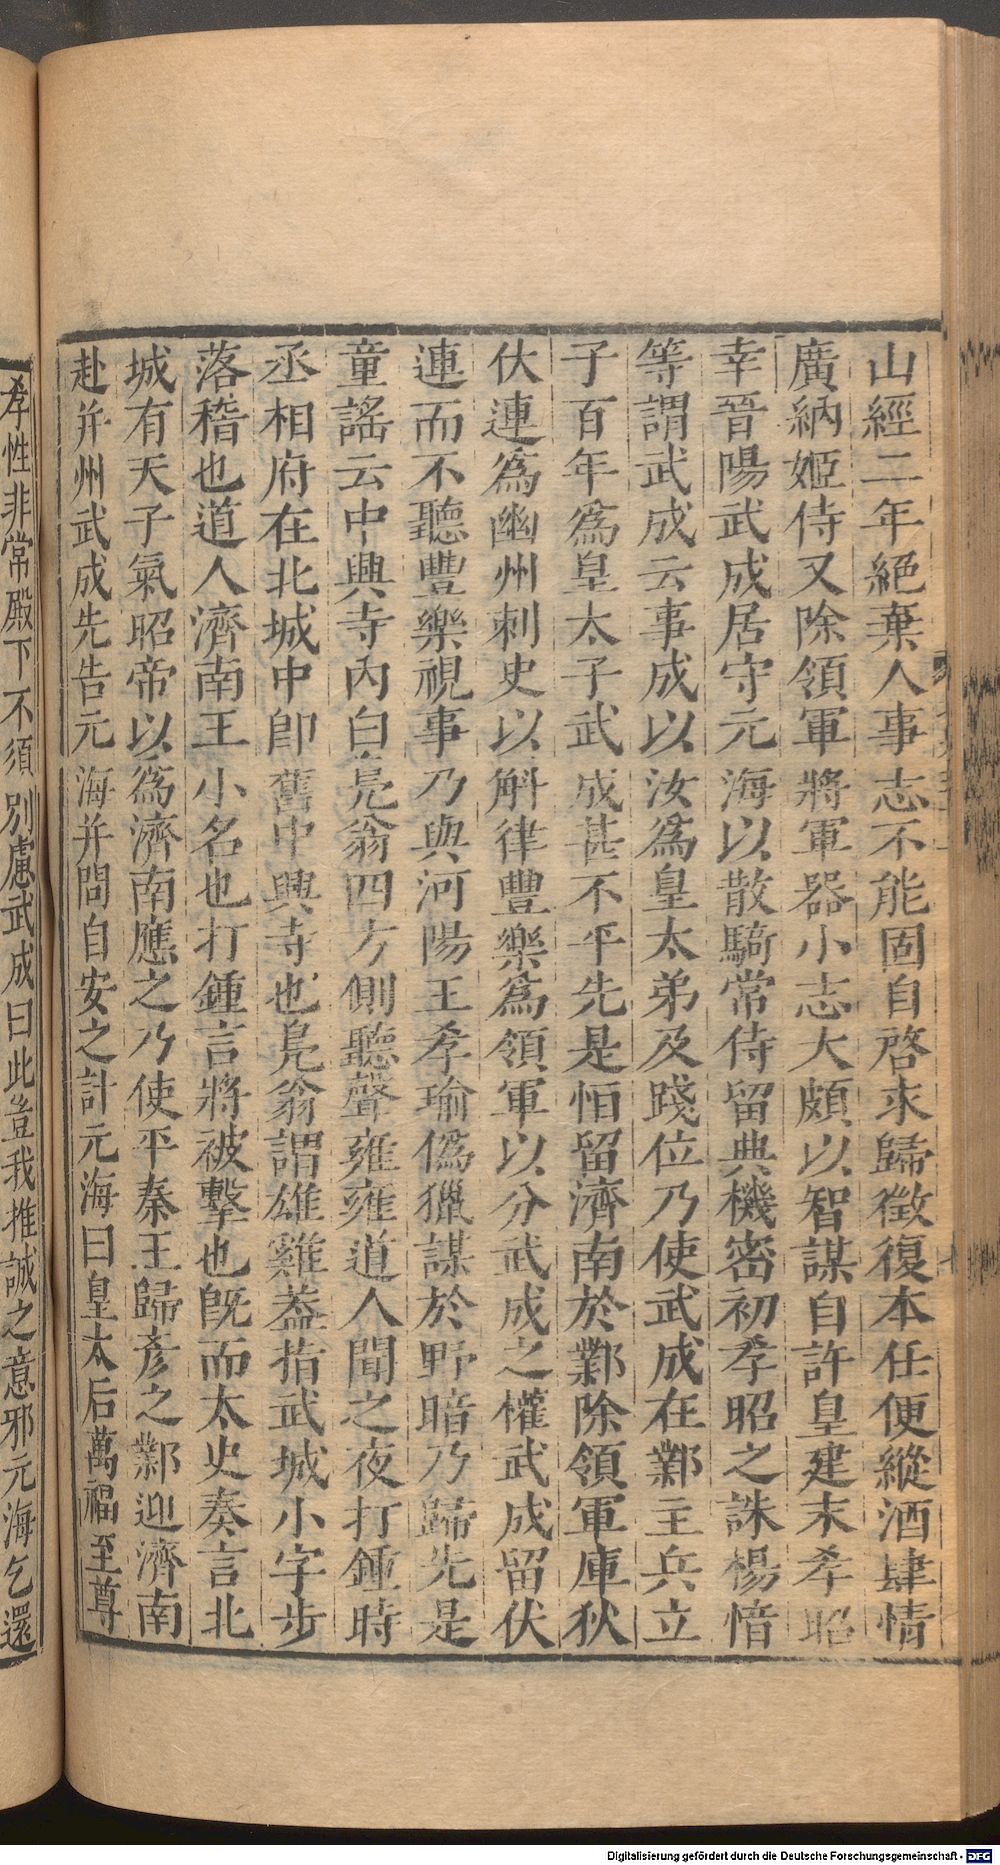 山經二年絕棄人事志不能固自啓求歸徵復本任便縱酒肆情
廣納姬侍又除領軍將軍器小志大頗以智謀自許皇建末孝昭
幸晉陽武成居守元海以散騎常侍留典機密初孝昭之誅楊愔
等謂武成云事成以汝爲皇太弟及踐位乃使武成在鄴主兵立
子百年爲皇太子武成甚不平先是恒留濟南於鄴除領軍庫狄
伏連爲幽州刺史以斛律豐樂爲領軍以分武成之權武成留伏
連而不聽豐樂視事乃與河陽王孝瑜僞獵謀於野暗乃歸先是
童謠云中興寺內白鳧翁四方側聽聲雍雍道人聞之夜打鍾時
丞相府在北城中卽舊中興寺也鳧翁謂雄雞葢指武城小字步
落稽也道人濟南王小名也打鍾言將被擊也旣而太史奏言北
城有天子氣昭帝以爲濟南應之乃使平秦王歸彥之鄴迎濟南
赴并州武成先告元海并問自安之計元海曰皇太后萬福至尊
孝性非常殿下不須別慮武成曰此豈我推誠之意邪元海乞還
Digitalisierung gefördert durch die Deutsche Forschungsgemeinschaft - DFG